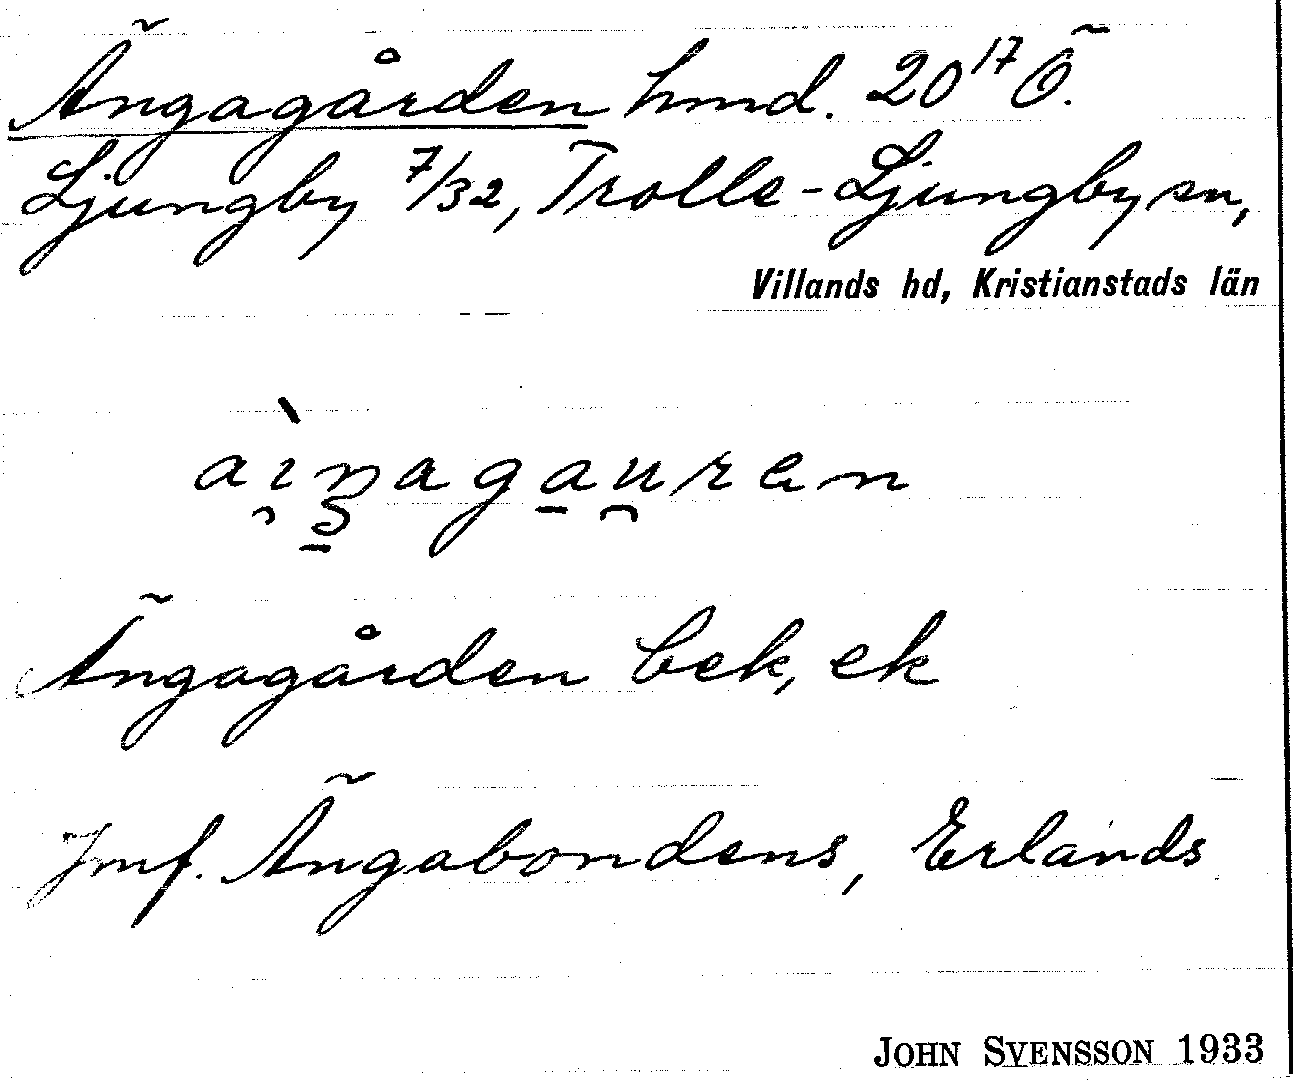 Ängagården hmd. 20¹⁷ Ö.
Ljungby 7/32, Trolle-Ljungby sn,
Villands hd, Kristianstads län
aìŋagau̯ren
Ängagården bek, ek
Jmf. Ängabondens, Erlands
JOHN SVENSSON 1933